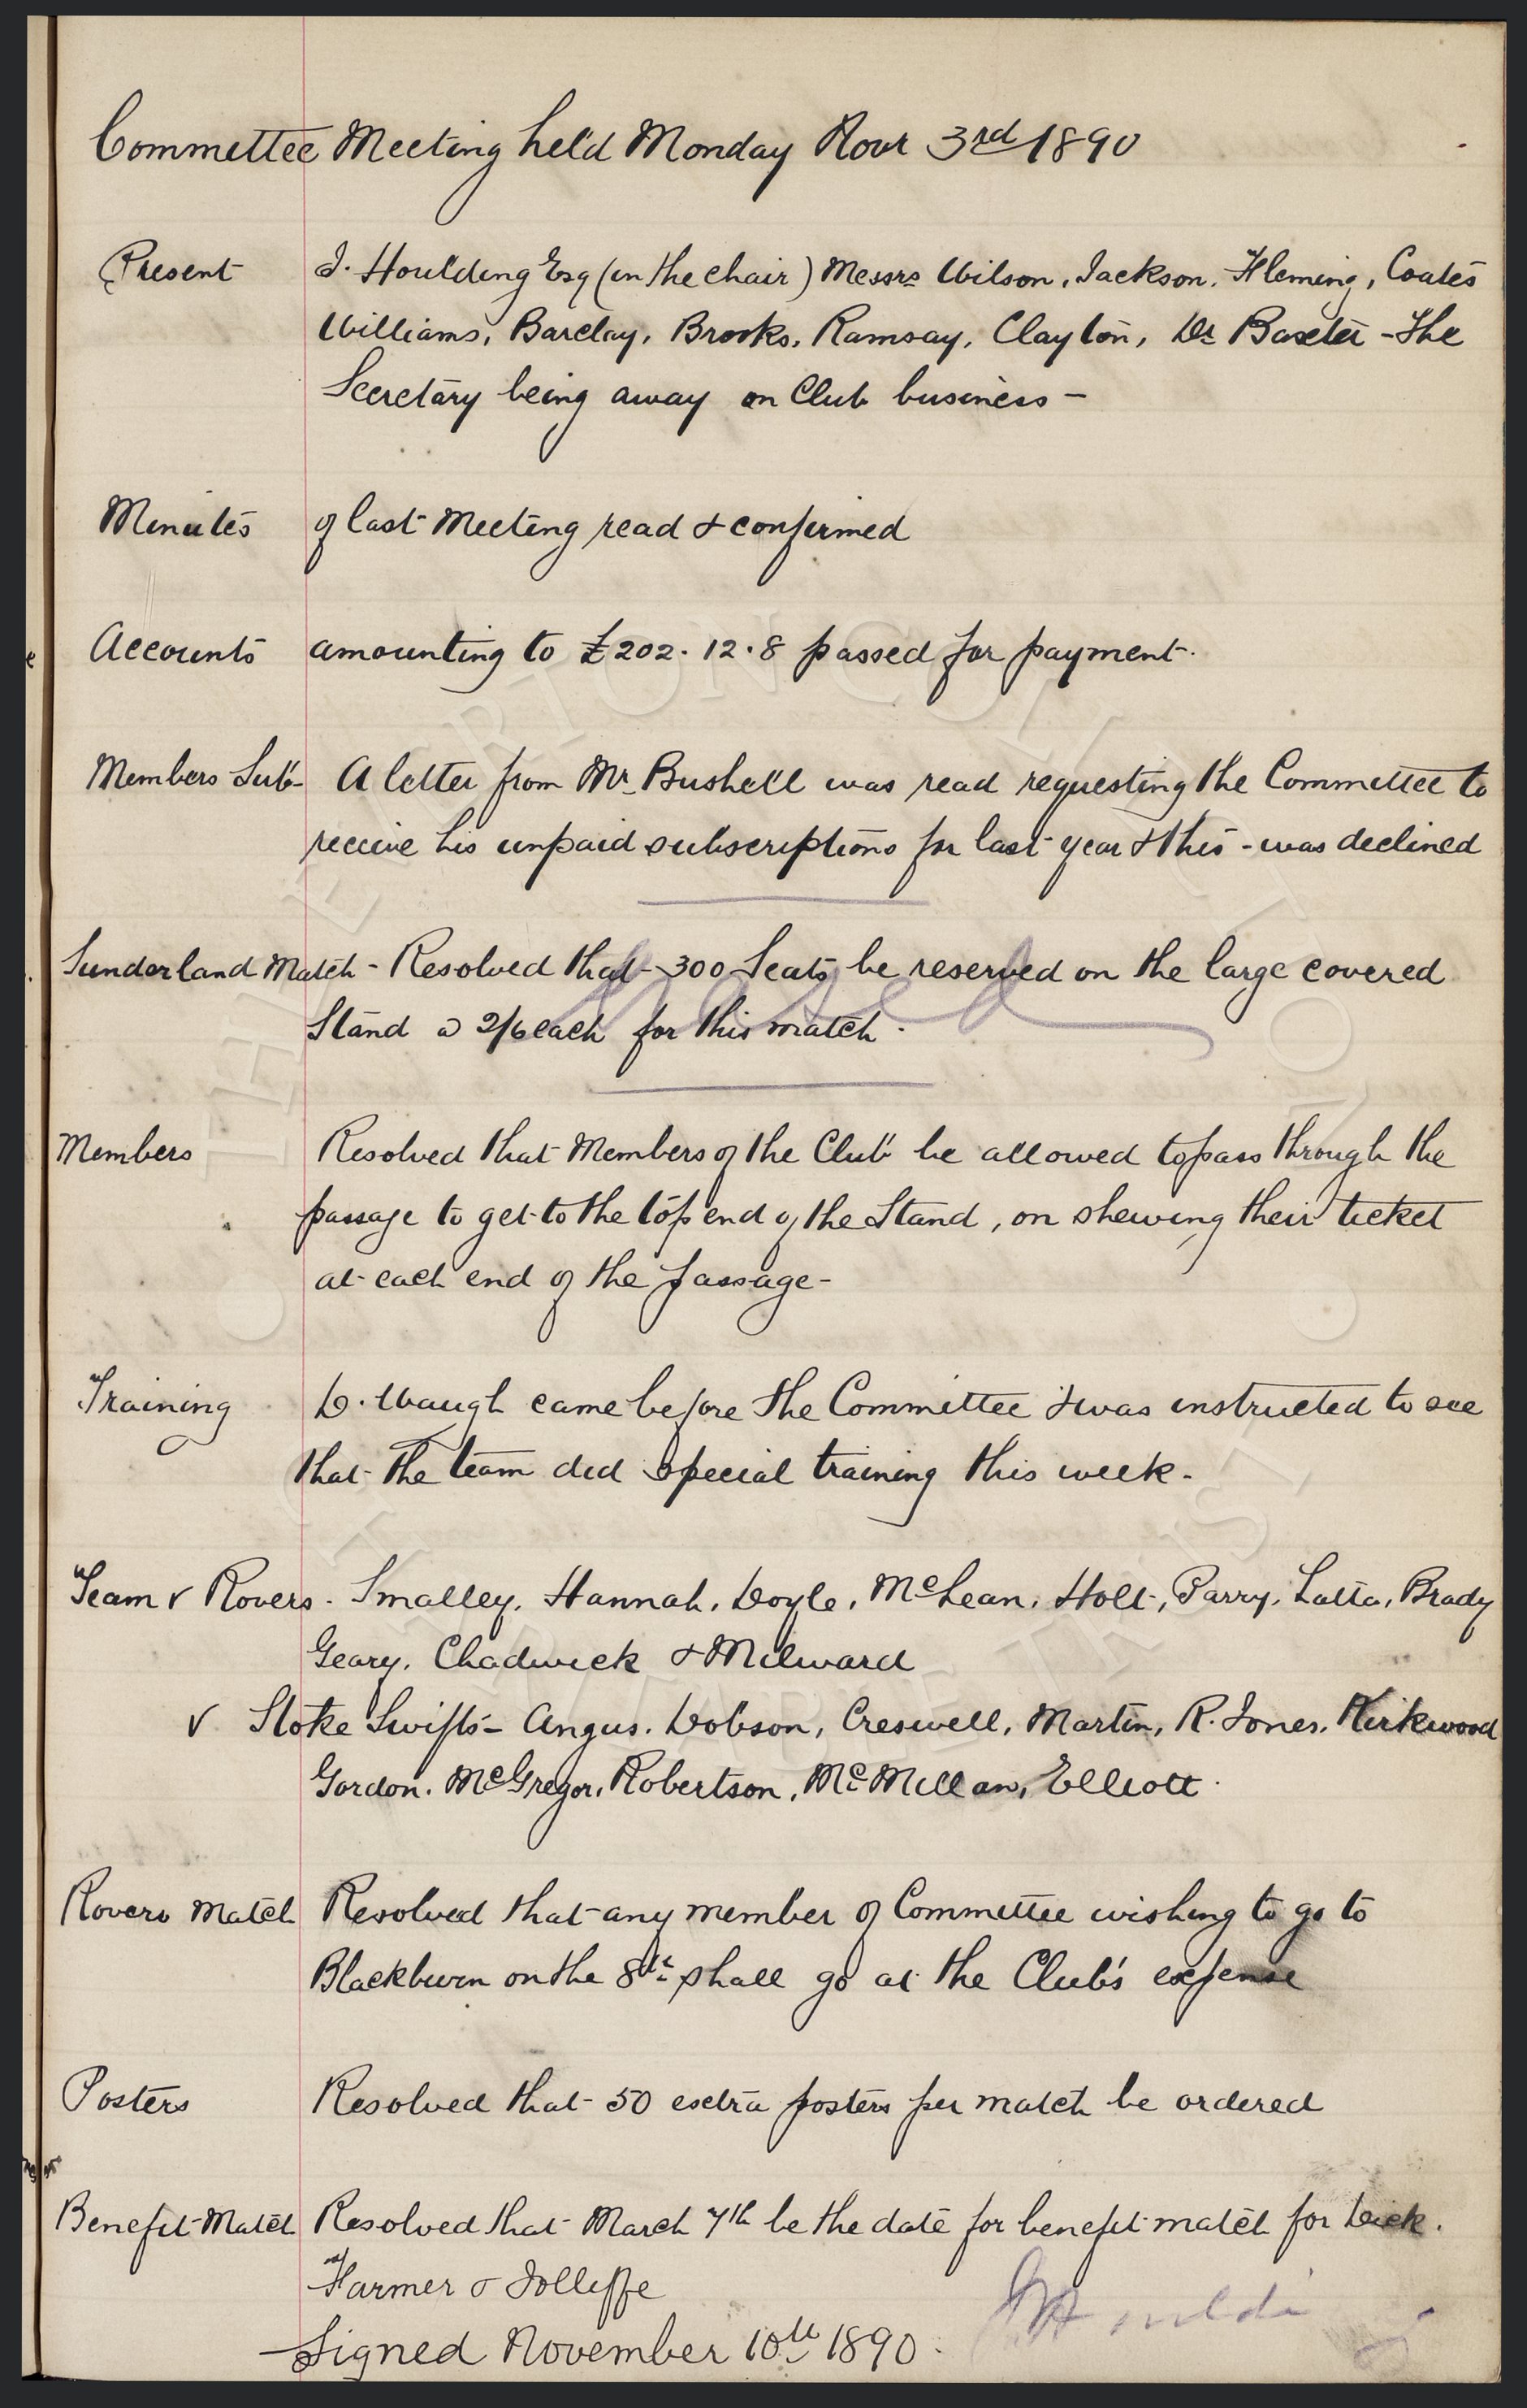 Committee Meeting held Monday Novr 3rd 1890
Present J. Houlding Esq (in the chair) Messrs Wilson, Jackson, Fleming, Coates
Williams, Barclay, Brooks, Ramsay, Clayton, Dr Baxter - The
Secretary being away on Club business -
Minutes of last Meeting read & confirmed
Accounts amounting to £202. 12. 8 passed for payment.
Members Sub- A letter from Mr Bushell was read requesting the Committee to
receive his unpaid subscriptions for last year & this - was declined
Sunderland Match - Resolved that - 300 Seats be reserved on the large covered
Stand @ 2/6 each for this match.
Members Resolved that Members of the Club be allowed to pass through the
passage to get to the top end of the Stand, on shewing their ticket
at each end of the passage -
Training D. Waugh came before the Committee & was instructed to see
that the team did special training this week -
Team v Rovers - Smalley, Hannah, Doyle, McLean, Holt, Parry, Latta, Brady
Geary, Chadwick & Milward
v Stoke Swifts - Angus, Dobson, Creswell, Martin, R. Jones, Kirkwood
Gordon, McGregor, Robertson, McMillan, Elliott.
Rovers Match Resolved that any member of Committee wishing to go to
Blackburn on the 8th shall go at the Club's expense
Posters Resolved that 50 extra posters per match be ordered
Benefit Match Resolved that March 7th be the date for benefit match for Dick.
Farmer & Jolliffe
Signed November 10th 1890. J Houlding